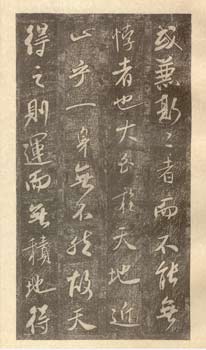 或兼斯二者而不能無
悖者也大哉聖天地近
止乎一身無不然故天
得之則運而無積地得